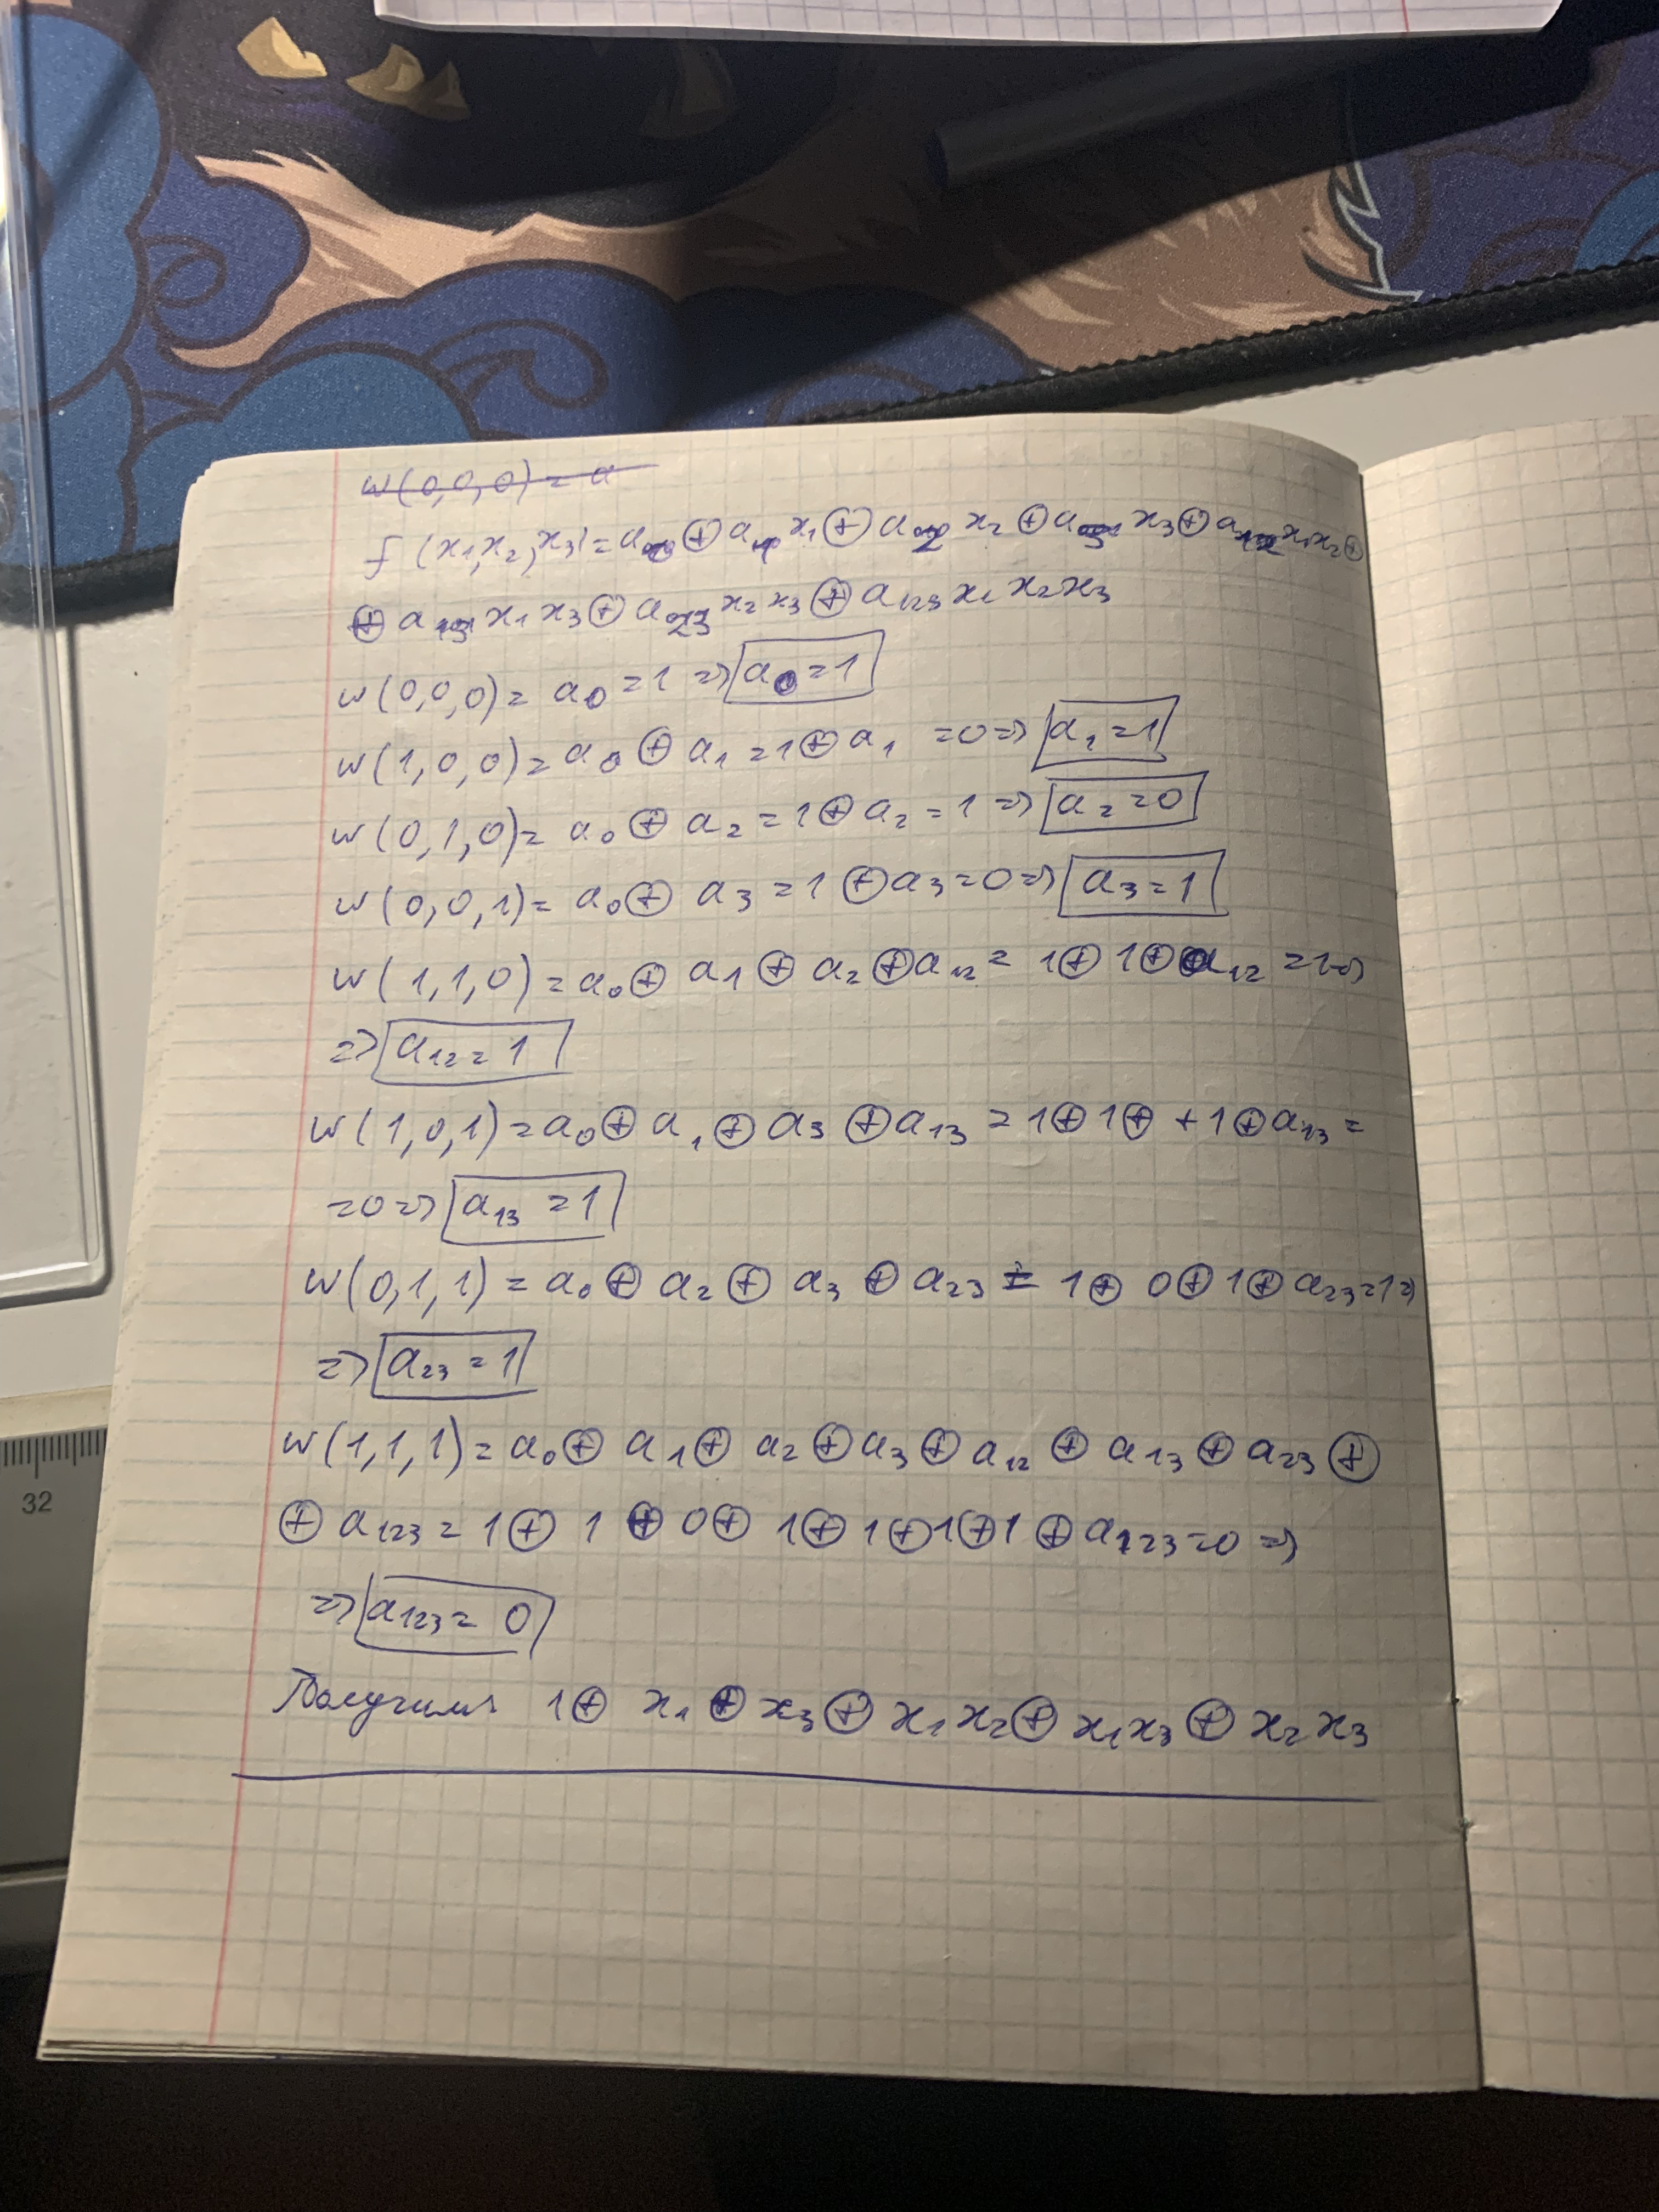 w(0,0,0) = a
f(x₁,x₂,x₃) = a₀ ⊕ a₁ x₁ ⊕ a₂ x₂ ⊕ a₃ x₃ ⊕ a₁₂ x₁x₂ ⊕
⊕ a₁₃ x₁ x₃ ⊕ a₂₃ x₂ x₃ ⊕ a₁₂₃ x₁ x₂ x₃
w(0,0,0) = a₀ = 1 => a₀ = 1
w(1,0,0) = a₀ ⊕ a₁ = 1 ⊕ a₁ = 0 => a₁ = 1
w(0,1,0) = a₀ ⊕ a₂ = 1 ⊕ a₂ = 1 => a₂ = 0
w(0,0,1) = a₀ ⊕ a₃ = 1 ⊕ a₃ = 0 => a₃ = 1
w(1,1,0) = a₀ ⊕ a₁ ⊕ a₂ ⊕ a₁₂ = 1 ⊕ 1 ⊕ a₁₂ = 1 =>
=> a₁₂ = 1
w(1,0,1) = a₀ ⊕ a₁ ⊕ a₃ ⊕ a₁₃ = 1 ⊕ 1 ⊕ + 1 ⊕ a₁₃ =
= 0 => a₁₃ = 1
w(0,1,1) = a₀ ⊕ a₂ ⊕ a₃ ⊕ a₂₃ = 1 ⊕ 0 ⊕ 1 ⊕ a₂₃ = 1 =>
=> a₂₃ = 1
w(1,1,1) = a₀ ⊕ a₁ ⊕ a₂ ⊕ a₃ ⊕ a₁₂ ⊕ a₁₃ ⊕ a₂₃ ⊕
⊕ a₁₂₃ = 1 ⊕ 1 ⊕ 0 ⊕ 1 ⊕ 1 ⊕ 1 ⊕ 1 ⊕ a₁₂₃ = 0 =>
=> a₁₂₃ = 0
Получили 1 ⊕ x₁ ⊕ x₃ ⊕ x₁ x₂ ⊕ x₁x₃ ⊕ x₂ x₃
32